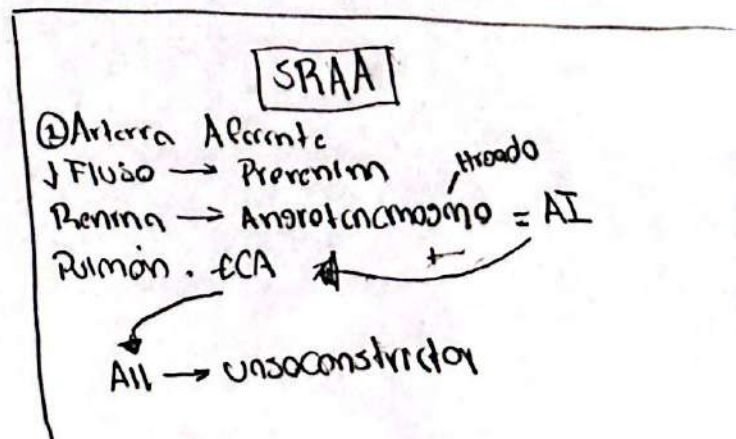 SRAA
① Arteria Aferente
↓ Flujo → Prorenina
Hígado
Renina → Angiotensinogeno = AI
Pulmón. ECA +
AII → vasoconstrictor